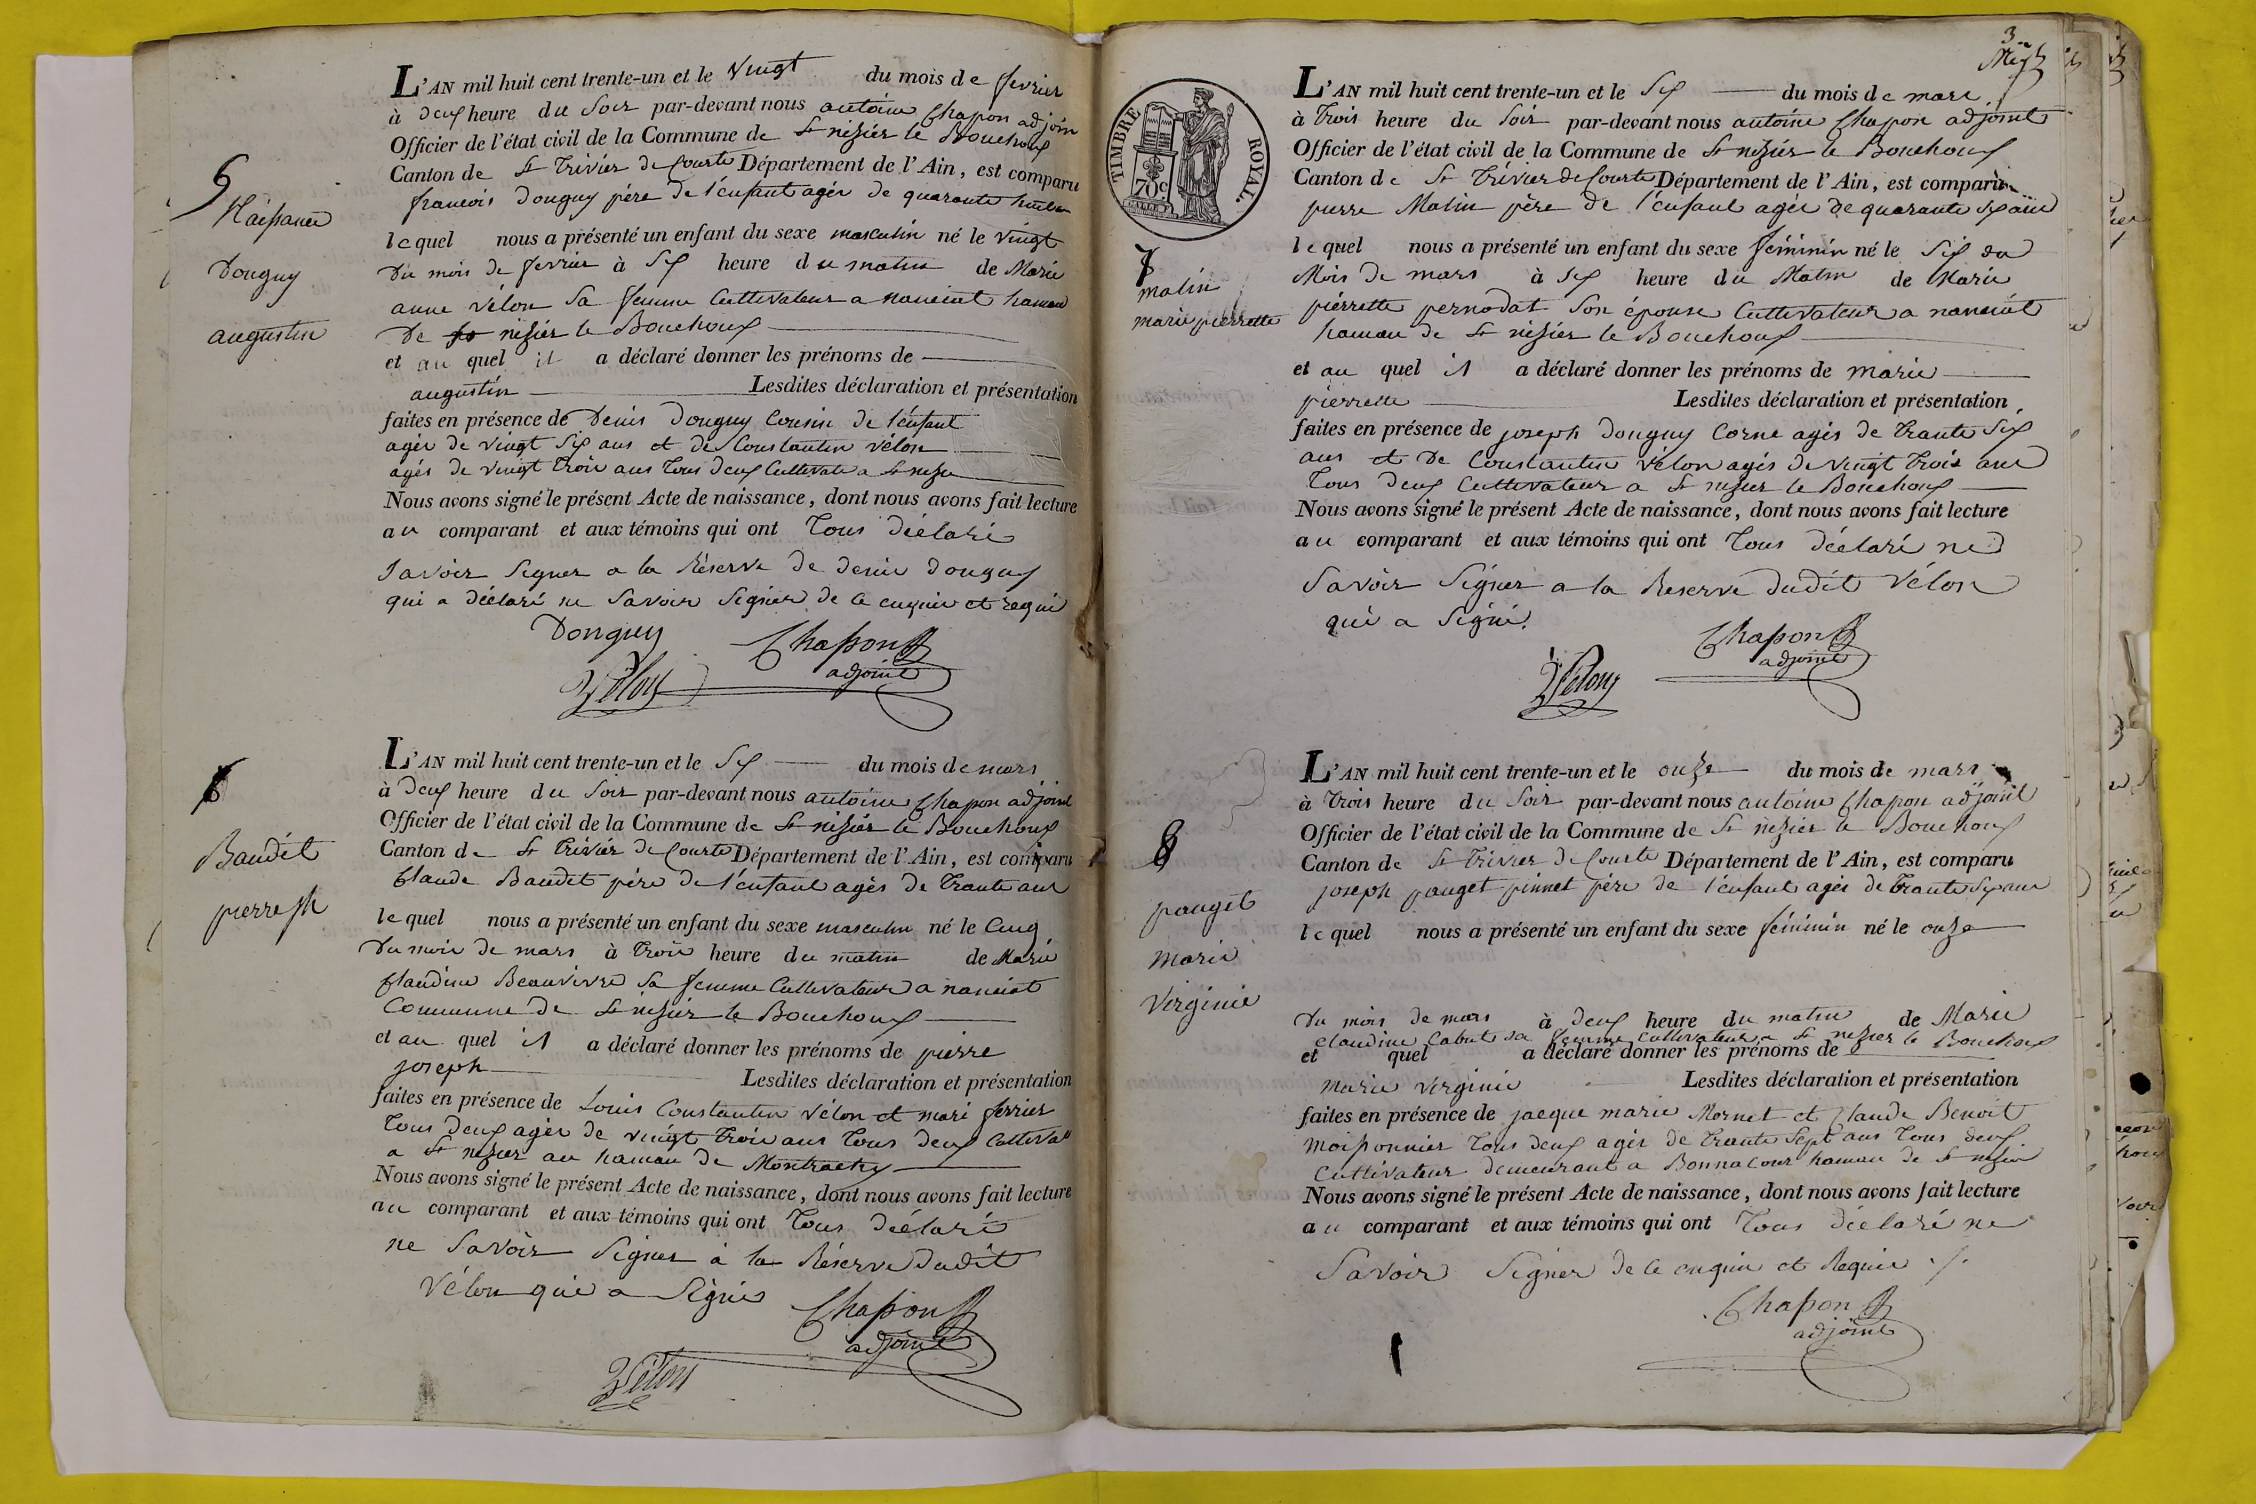 5
Naissance
Donguy
augustin
L'AN mil huit cent trente-un et le vingt du mois de fevrier
à deux heure du Soir par-devant nous antoine Chapon adjoin
Officier de l'état civil de la Commune de St nizier le Bouchoux
Canton de St Trivier de Courte Département de l'Ain, est comparu
francois Donguy père de l'enfant agér de quarante huit
lequel nous a présenté un enfant du sexe masculin né le vingt
Du mois de fevrier à Six heure du matin de Marie
anne vélon Sa femme Cultivateur a nanciat hameau
De nizier le Bouchoux
et au quel il a déclaré donner les prénoms de
augustin Lesdites déclaration et présentation
faites en présence de Denis Donguy Cousin de l'enfant
agér de vingt Six ans et de Constantin vélon
agés de vingt trois ans Tous deux Cultivate a St nizie
Nous avons signé le présent Acte de naissance, dont nous avons fait lecture
au comparant et aux témoins qui ont Tous déclaré
Savoir Signer a la Réserve de denis donguy
qui a déclaré ne Savoir Signer de ce enquis et requi
Donguy Chapon
adjoint
Vélon
6
Baudet
pierre jh
L'AN mil huit cent trente-un et le Six du mois de mars
à Deux heure du Soir par-devant nous antoine Chapon adjoint
Officier de l'état civil de la Commune de St nizier le Bouchoux
Canton de St Trivier de Courte Département de l'Ain, est comparu
Claude Baudet père de l'enfant agés de Trante ans
lequel nous a présenté un enfant du sexe masculin né le Cinq
Du mois de mars à Trois heure du matin de Marie
Claudine Beauvivre Sa femme Cultivateur a nanciat
Commune de St nizier le Bouchoux
et au quel il a déclaré donner les prénoms de pierre
joseph Lesdites déclaration et présentation
faites en présence de Louis Constantin vélon et mari ferrier
Tous deux agér de vingt trois ans Tous deux Cultivat
a St nizier au hameau de Montrachy
Nous avons signé le présent Acte de naissance, dont nous avons fait lecture
au comparant et aux témoins qui ont Tous déclaré
ne Savoir Signer à la Réserve dudit
Vélon qui a Signé
Chapon
adjoint
Vélon
3
TIMBRE ROYAL.
70c
7
malin
marie pierrette
L'AN mil huit cent trente-un et le Six du mois de mars
à Trois heure du Soir par-devant nous antoine Chapon adjoint
Officier de l'état civil de la Commune de St nizier le Bouchoux
Canton de St Trévier de Courte Département de l'Ain, est comparu
pierre Malin père de l'enfant agér de quarante Six ans
lequel nous a présenté un enfant du sexe féminin né le Six du
Mois de mars à Six heure du Matin de Marie
piérrette pernodat Son épouse Cultivateur a nanciat
hameau de St nizier le Bouchoux
et au quel il a déclaré donner les prénoms de marie
pierrette Lesdites déclaration et présentation
faites en présence de joseph Donguy Corne agés de Trante Six
ans et De Constantin vélon agés de vingt trois ans
Tous deux Cultivateur a St nizier le Bouchoux
Nous avons signé le présent Acte de naissance, dont nous avons fait lecture
au comparant et aux témoins qui ont Tous déclaré ne
Savoir Signer a la Reserve dudit Vélon
qui a Signé.
Chapon
adjoint
Vélon
8
pauget
marie
Virginie
L'AN mil huit cent trente-un et le onze du mois de mars
à Trois heure du Soir par-devant nous antoine Chapon adjoint
Officier de l'état civil de la Commune de St nizier le Bouchoux
Canton de St Trivier de Courte Département de l'Ain, est comparu
joseph pauget pinnet pére de l'enfant agér de Trante Six ans
lequel nous a présenté un enfant du sexe féminin né le onze
Du mois de mars à deux heure du matin de Marie
Claudine Cabut sa femme Cultivateur a St nizier le Bouchoux
et quel a déclaré donner les prénoms de
marie virginie Lesdites déclaration et présentation
faites en présence de jacque marie Mornet et Claude Benoit
Moissonnier Tous deux agér de trante Sept ans Tous deux
Cultivateur demeurant a Bonnacour hameau de St nizier
Nous avons signé le présent Acte de naissance, dont nous avons fait lecture
au comparant et aux témoins qui ont Tous déclaré ne
Savoir Signer de ce enquis et Requis ./.
Chapon
adjoint